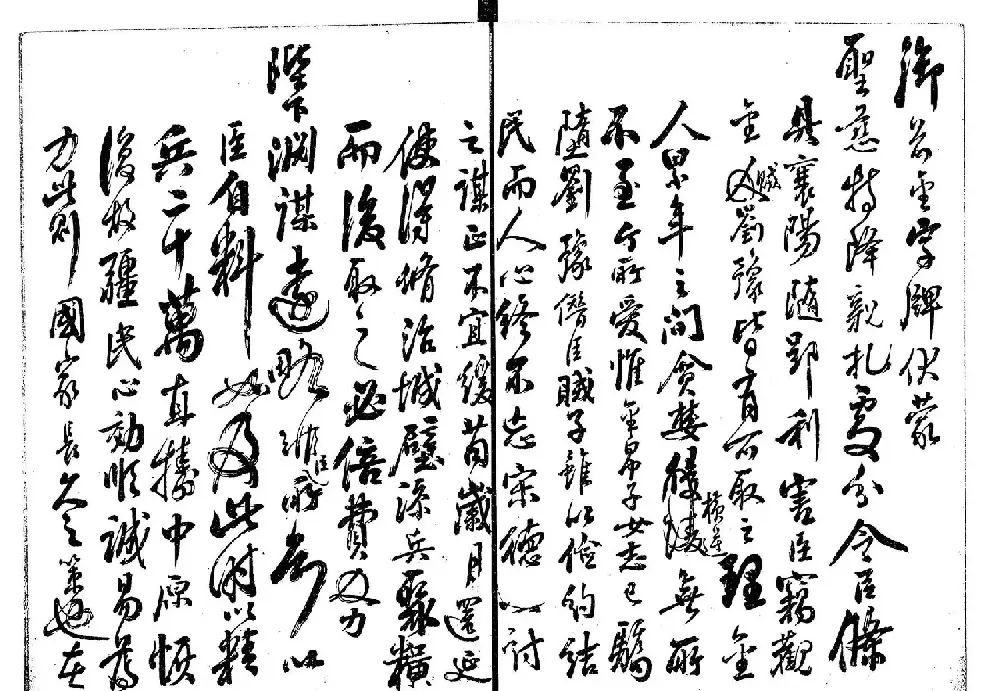 御前金字牌伏蒙
聖慈特降親札處分令臣條
具襄陽隨郢利害臣竊觀
金賊劉豫皆有可取之理金
人累年之間貪婪橫逆無所
不至今所愛惟金帛子女志已驕
墮劉豫僭臣賊子雖以儉約結
民而人心終不忘宋德以討
之謀正不宜緩苟歲月遷延
使得脩治城壁添兵聚糧
而後取之必倍費力
陛下淵謀遠略非臣所知以
臣自料如及此時以精
兵二十萬直擣中原恢
復故疆民心効順誠易為
力此則國家長久之策也在